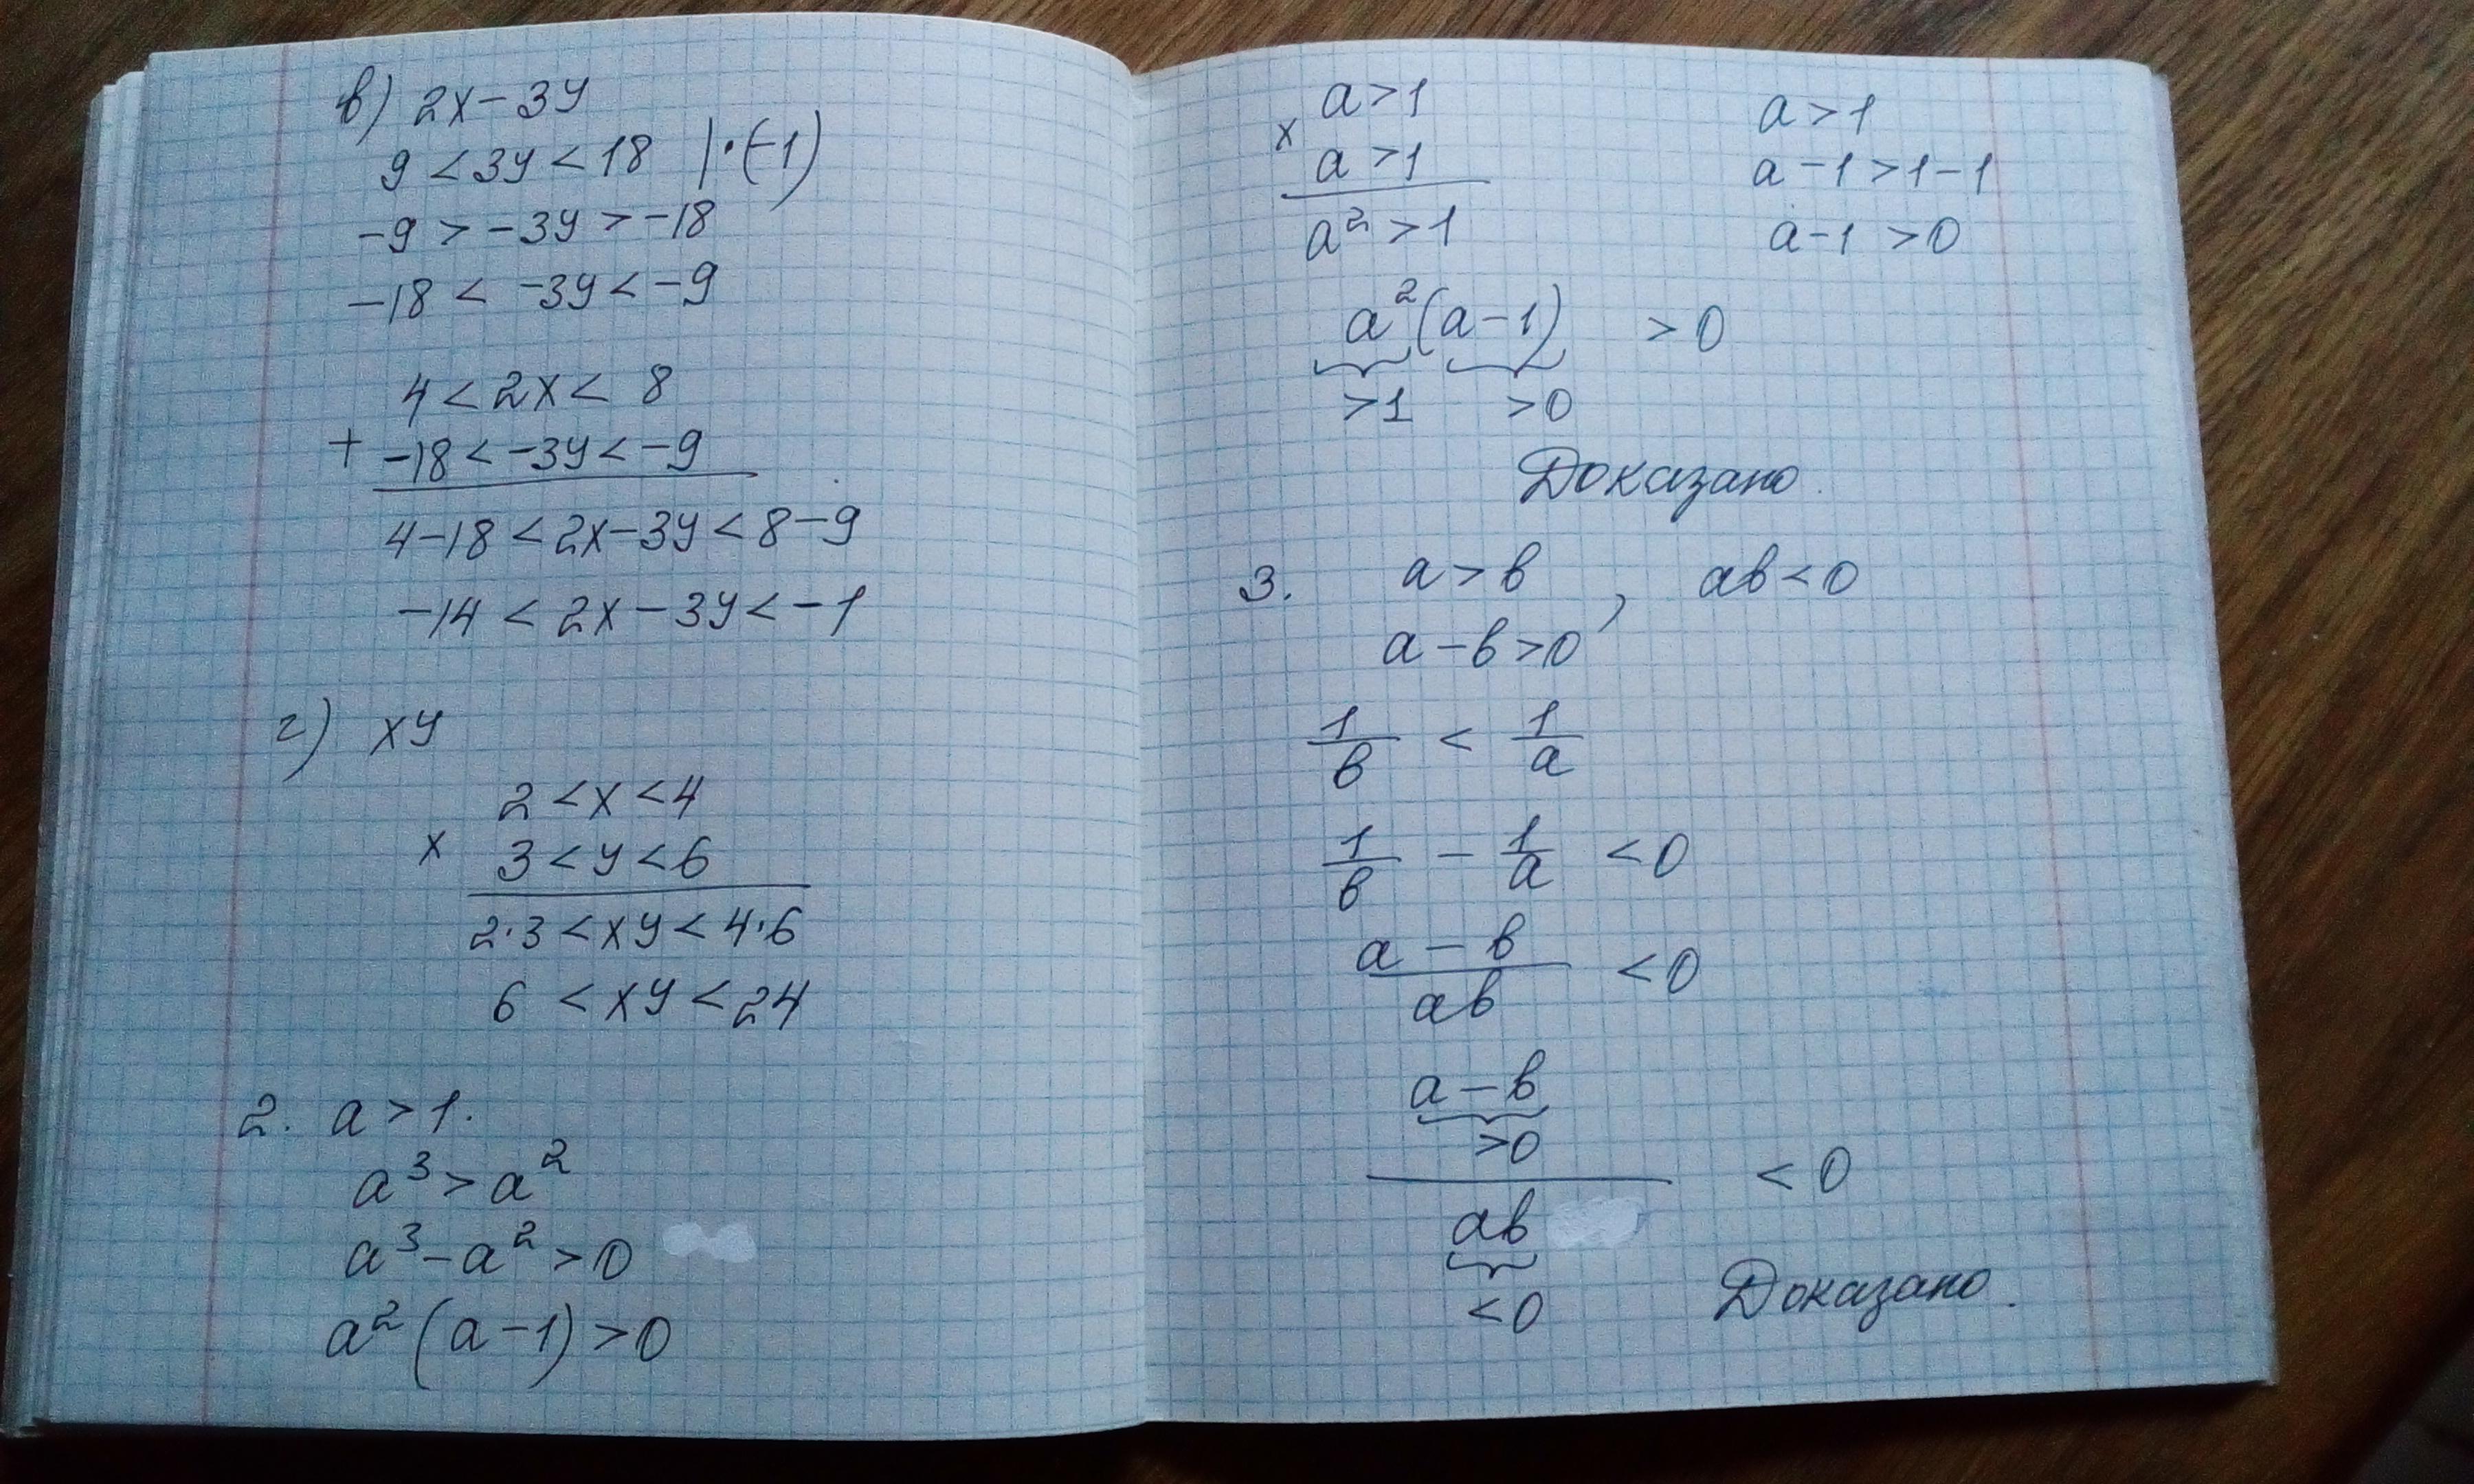 в) 2x-3y
9<3y<18 |·(-1)
-9>-3y>-18
-18<-3y<-9
4<2x<8
+ -18<-3y<-9
4-18<2x-3y<8-9
-14<2x-3y<-1
г) xy
2<x<4
x 3<y<6
2·3<xy<4·6
6<xy<24
2. a>1.
a³>a²
a³-a²>0
a²(a-1)>0
a>1
x a>1
a²>1
a>1
a-1>1-1
a-1>0
a²(a-1) >0
>1 >0
Доказано.
3. a>b, ab<0
a-b>0
1/b < 1/a
1/b - 1/a <0
a-b/ab <0
a-b
>0
<0
ab
<0
Доказано.